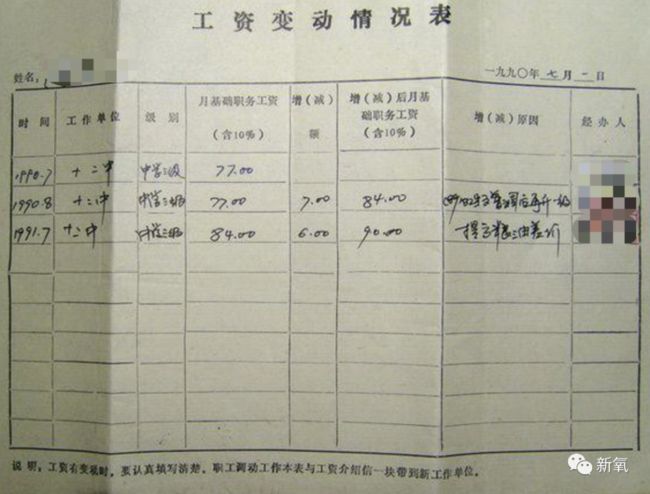 工资变动情况表
姓名：
一九九〇年七月一日
时间 工作单位 级别 月基础职务工资（含10%） 增（减）额 增（减）后月基础职务工资（含10%） 增（减）原因 经办人
1990.7 十二中 中学三级 77.00
1990.8 十二中 中学三级 77.00 7.00 84.00
1991.7 十二中 中学三级 84.00 6.00 90.00 提高粮油差价
说明：工资有变动时，要认真填写清楚。职工调动工作本表与工资介绍信一块带到新工作单位。
新氧